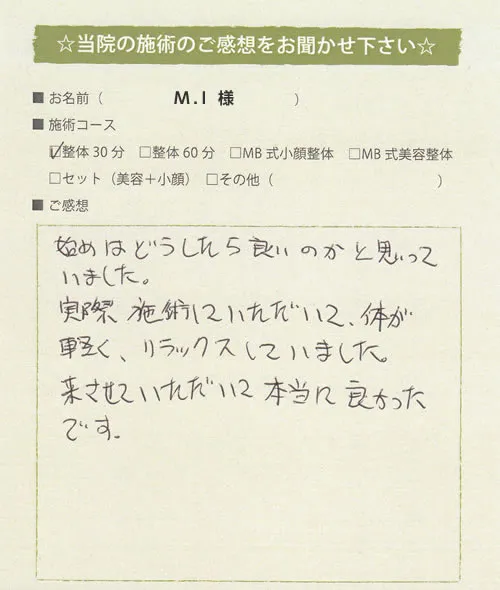 ☆当院の施術のご感想をお聞かせ下さい☆
■お名前（ M.I 様 ）
■施術コース
☑整体30分 □整体60分 □MB式小顔整体 □MB式美容整体
□セット（美容＋小顔） □その他（ ）
■ご感想
始めはどうしたら良いのかと思って
いました。
実際施術していただいて、体が
軽く、リラックスしていました。
来させていただいて本当に良かった
です。